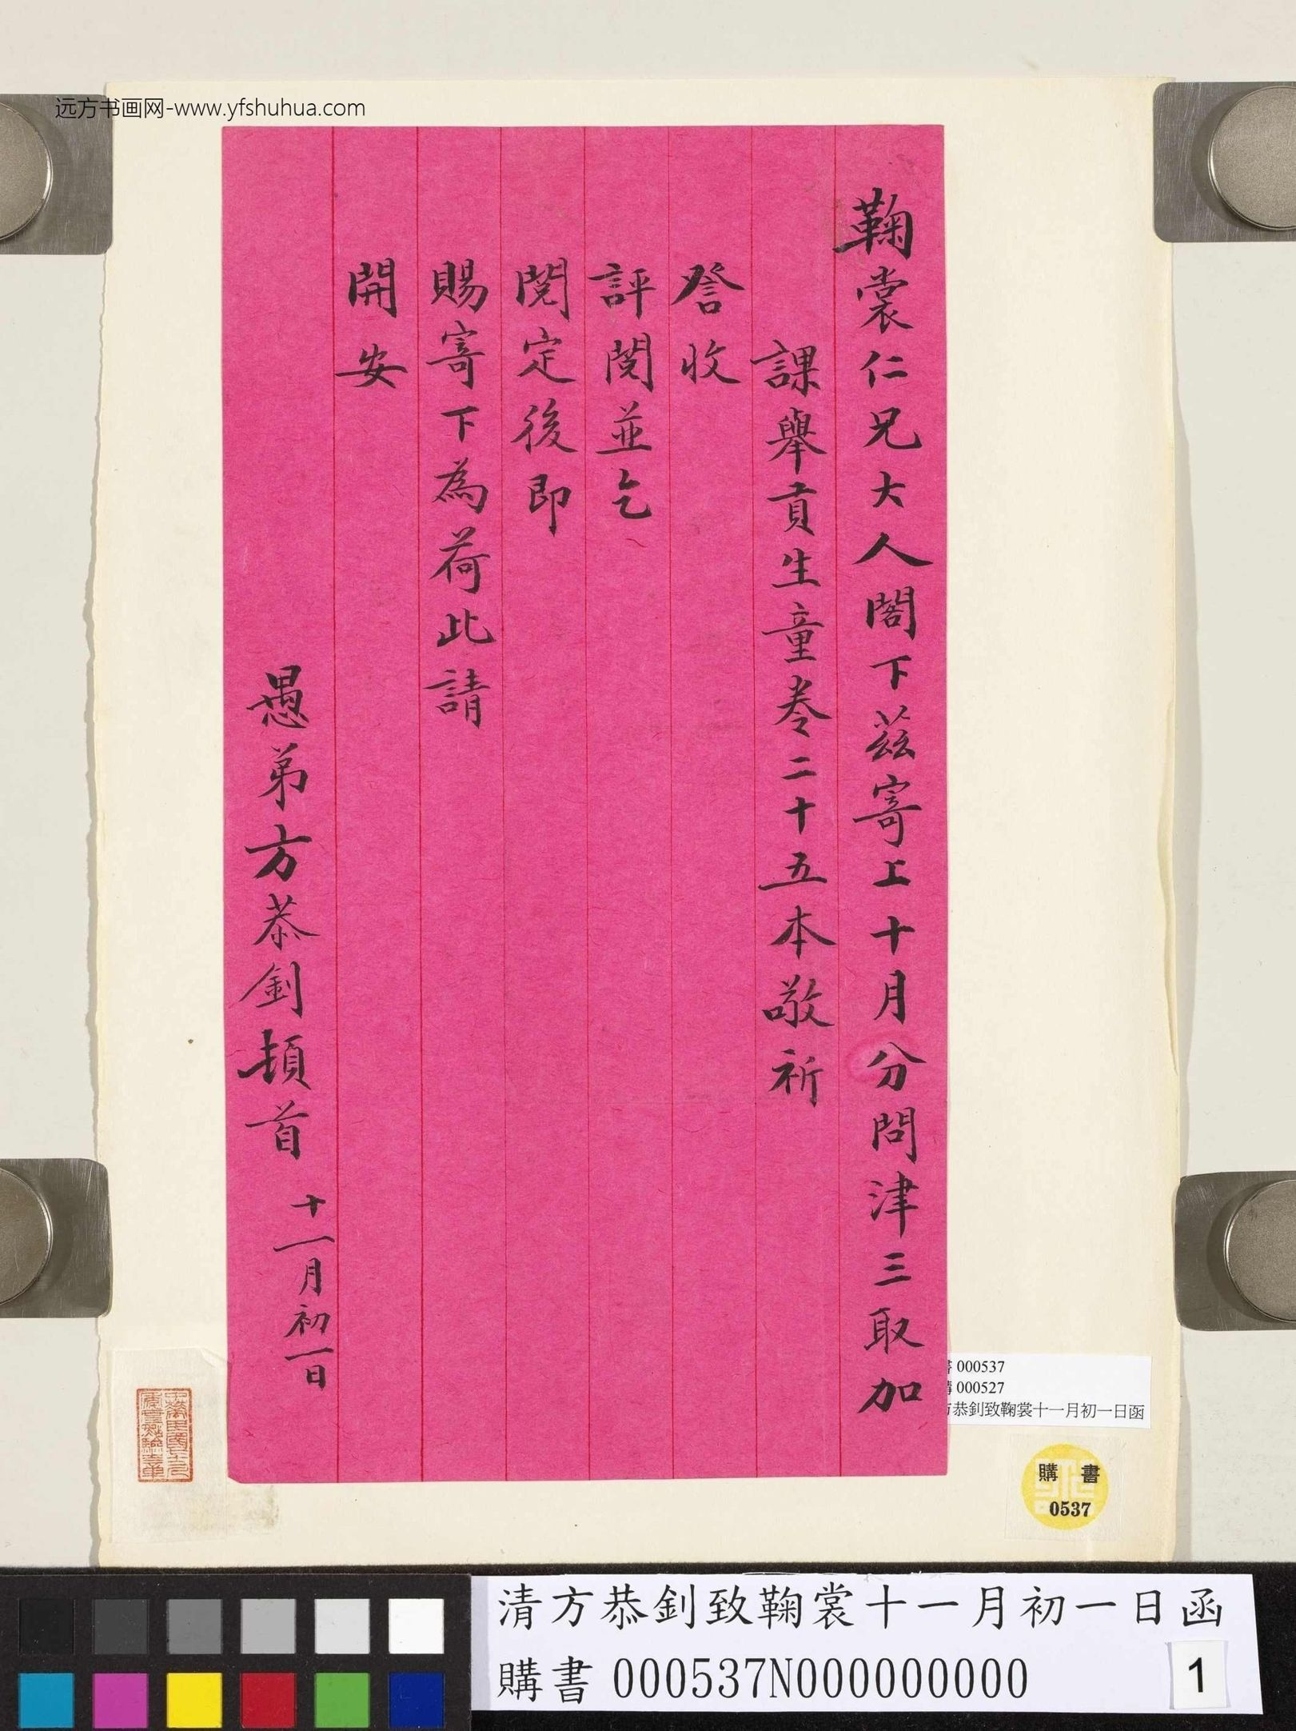 远方书画网-www.yfshuhua.com
鞠裳仁兄大人閣下茲寄上十月分問津三取加
課舉貢生童卷二十五本敬祈
詧收
評閱並乞
閱定後即
賜寄下為荷此請
開安
愚弟方恭釗頓首 十一月初一日
000537
000527
恭釗致鞠裳十一月初一日函
購 書
0537
清方恭釗致鞠裳十一月初一日函
購書 000537N000000000
1